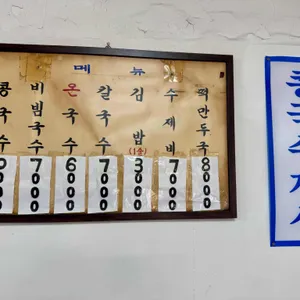 메뉴
콩국수
비빔국수
온국수
칼국수
김밥(1줄)
수제비
떡만두국
7000
6000
7000
3000
7000
8000
콩국수개시